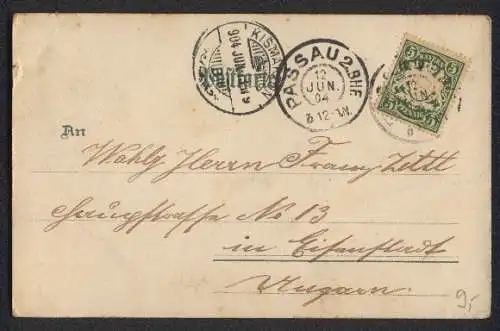 Postkarte
KISMA
904 JUN.
PASSAU 2.BHF.
12
JUN.
04
5
5
An
Wohlg Herrn Franz
Hauptstrasse No 13
in Eisenstadt
Ungarn
9,-